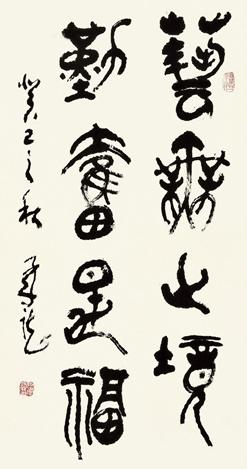 藝無止境
勤奮是福
癸巳之秋